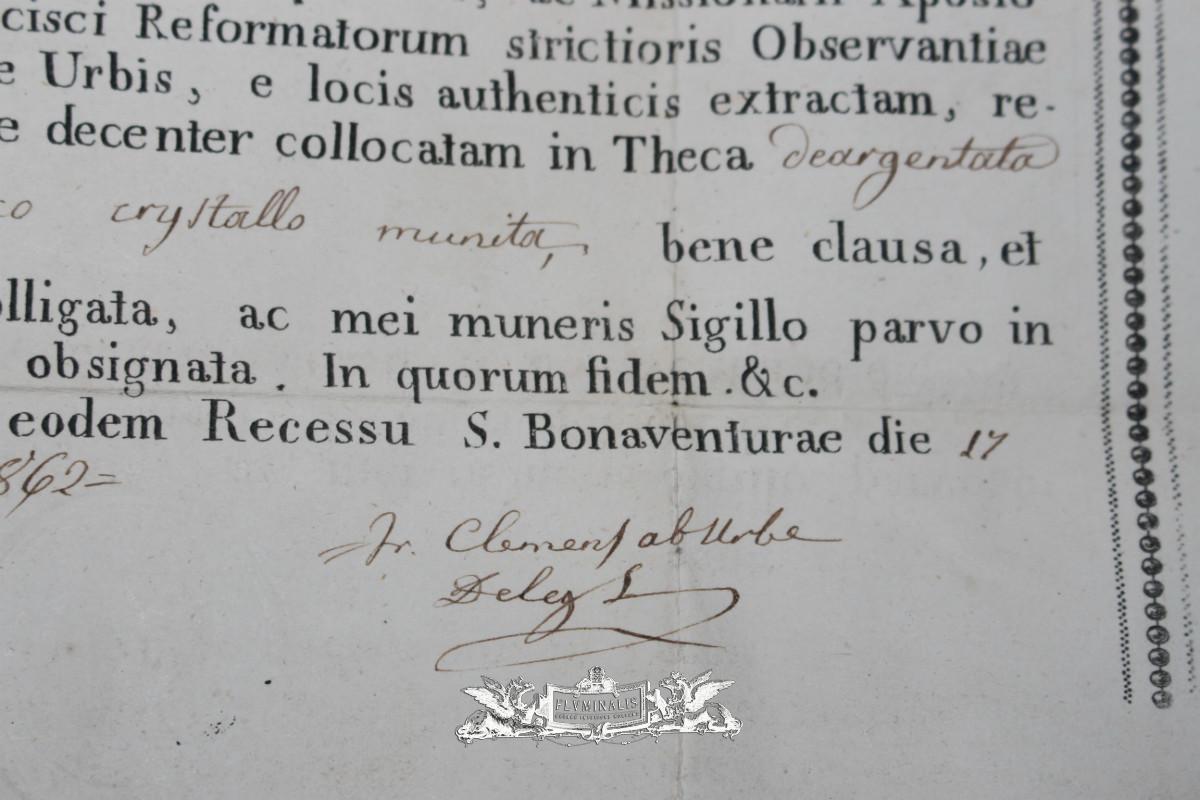 cisci Reformatorum strictioris Observantiae
e Urbis, e locis authenticis extractam, re-
e decenter collocatam in Theca deargentata
co crystallo munita, bene clausa, et
lligata, ac mei muneris Sigillo parvo in
obsignata. In quorum fidem. &c.
eodem Recessu S. Bonaventurae die 17
862=
Fr. Clemens ab Urbe
Deleg
FLVMINALIS